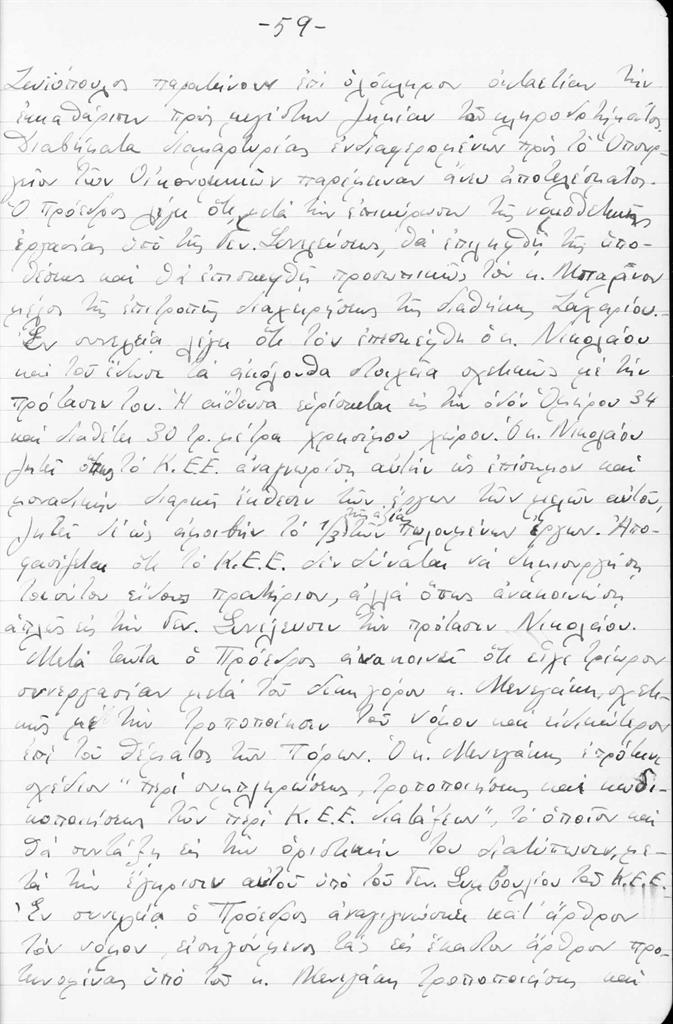 -59-
παρατείνουν ἐπὶ ὁλόκληρον ὀκταετίαν τὴν
ἐκκαθάρισιν πρὸς μεγίστην ζημίαν τοῦ κληροδοτήματος.
Διαβήματα διαμαρτυρίας ἐνδιαφερομένων πρὸς τὸ Ὑπουρ-
γεῖον τῶν Οἰκονομικῶν παρέμειναν ἄνευ ἀποτελέσματος.
Ὁ πρόεδρος λέγει ὅτι, μετὰ τὴν ἐπικύρωσιν τῆς νομοθετικῆς
ἐργασίας ὑπὸ τῆς Γεν. Συνελεύσεως, θὰ ἐπιληφθῆ τῆς ὑπο-
θέσεως καὶ θὰ ἐπισκεφθῆ προσωπικῶς τὸν κ.
μέλος τῆς ἐπιτροπῆς διαχειρήσεως τῆς διαθήκης Ζαχαρίου.-
Ἐν συνεχείᾳ λέγει ὅτι τὸν ἐπεσκέφθη ὁ κ. Νικολάου
καὶ τοῦ ἔδωσε τὰ ἀκόλουθα στοιχεῖα σχετικῶς μὲ τὴν
πρότασίν του. Ἡ αἴθουσα εὑρίσκεται εἰς τὴν ὁδὸν Ὁμήρου 34
καὶ διαθέτει 30 τρ. μέτρα χρησίμου χώρου. Ὁ κ. Νικολάου
ζητεῖ ὅπως τὸ Κ.Ε.Ε. ἀναγνωρίση αὐτὴν ὡς ἐπίσημον καὶ
μοναδικὴν διαρκῆ ἔκθεσιν τῶν ἔργων τῶν μελῶν αὐτοῦ,
ζητεῖ δὲ ὡς ἀμοιβὴν τὸ 1/3 τῆς ἀξίας τῶν πωλουμένων ἔργων. Ἀπο-
φασίζεται ὅτι τὸ Κ.Ε.Ε. δὲν δύναται νὰ δημιουργήση
τοιούτου εἴδους πρατήριον, ἀλλὰ ὅπως ἀνακοινώση
ἁπλῶς εἰς τὴν Γεν. Συνέλευσιν τὴν πρότασιν Νικολάου.
Μετὰ ταῦτα ὁ Πρόεδρος ἀνακοινεῖ ὅτι εἶχε τρίωρον
συνεργασίαν μετὰ τοῦ δικηγόρου κ. Μενεγάκη, σχετι-
κῶς μὲ τὴν τροποποίησιν τοῦ νόμου καὶ εἰδικώτερον
ἐπὶ τοῦ θέματος τῶν Πόρων. Ὁ κ. Μενεγάκης ἐπρότεινε
σχέδιον "περὶ συμπληρώσεως, τροποποιήσεως καὶ κωδι-
κοποιήσεως τῶν περὶ Κ.Ε.Ε. διατάξεων", τὸ ὁποῖον καὶ
θὰ συντάξη εἰς τὴν ὁριστικήν του διατύπωσιν, με-
τὰ τὴν ἔγκρισιν αὐτοῦ ὑπὸ τοῦ Γεν. Συμβουλίου τοῦ Κ.Ε.Ε.
Ἐν συνεχείᾳ ὁ Πρόεδρος ἀναγιγνώσκει κατ' ἄρθρον
τὸν νόμον, εἰσηγούμενος τὰς εἰς ἕκαστον ἄρθρον προ-
τεινομένας ὑπὸ τοῦ κ. Μενεγάκη τροποποιήσεις καὶ